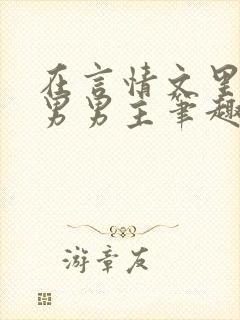 在言情文里
男男主笔趣
游章友